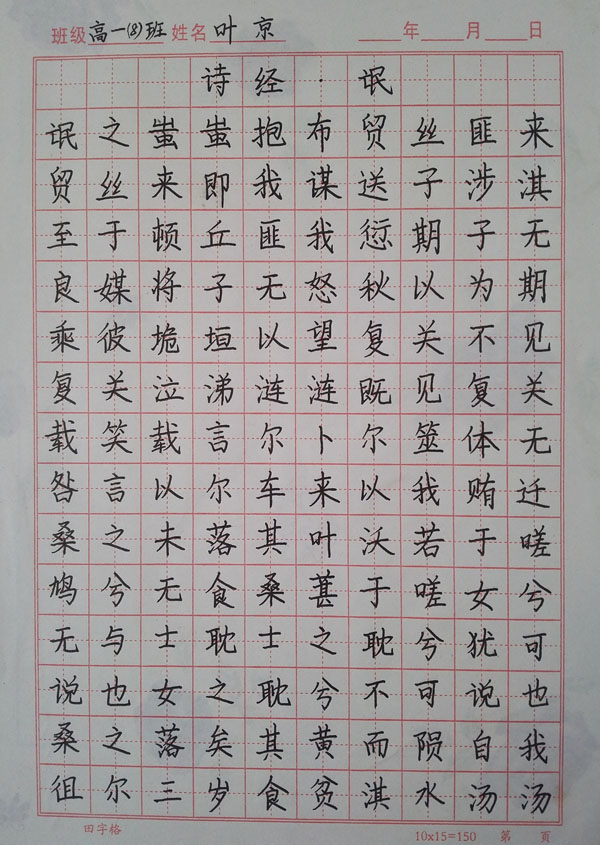 班级高一(8)班 姓名叶京 年 月 日
诗经·氓
氓之蚩蚩抱布贸丝匪来
贸丝来即我谋送子涉淇
至于顿丘匪我愆期子无
良媒将子无怒秋以为期
乘彼垝垣以望复关不见
复关泣涕涟涟既见复关
载笑载言尔卜尔筮体无
咎言以尔车来以我贿迁
桑之未落其叶沃若于嗟
鸠兮无食桑葚于嗟女兮
无与士耽士之耽兮犹可
说也女之耽兮不可说也
桑之落矣其黄而陨自我
徂尔三岁食贫淇水汤汤
田字格 10x15=150 第 页